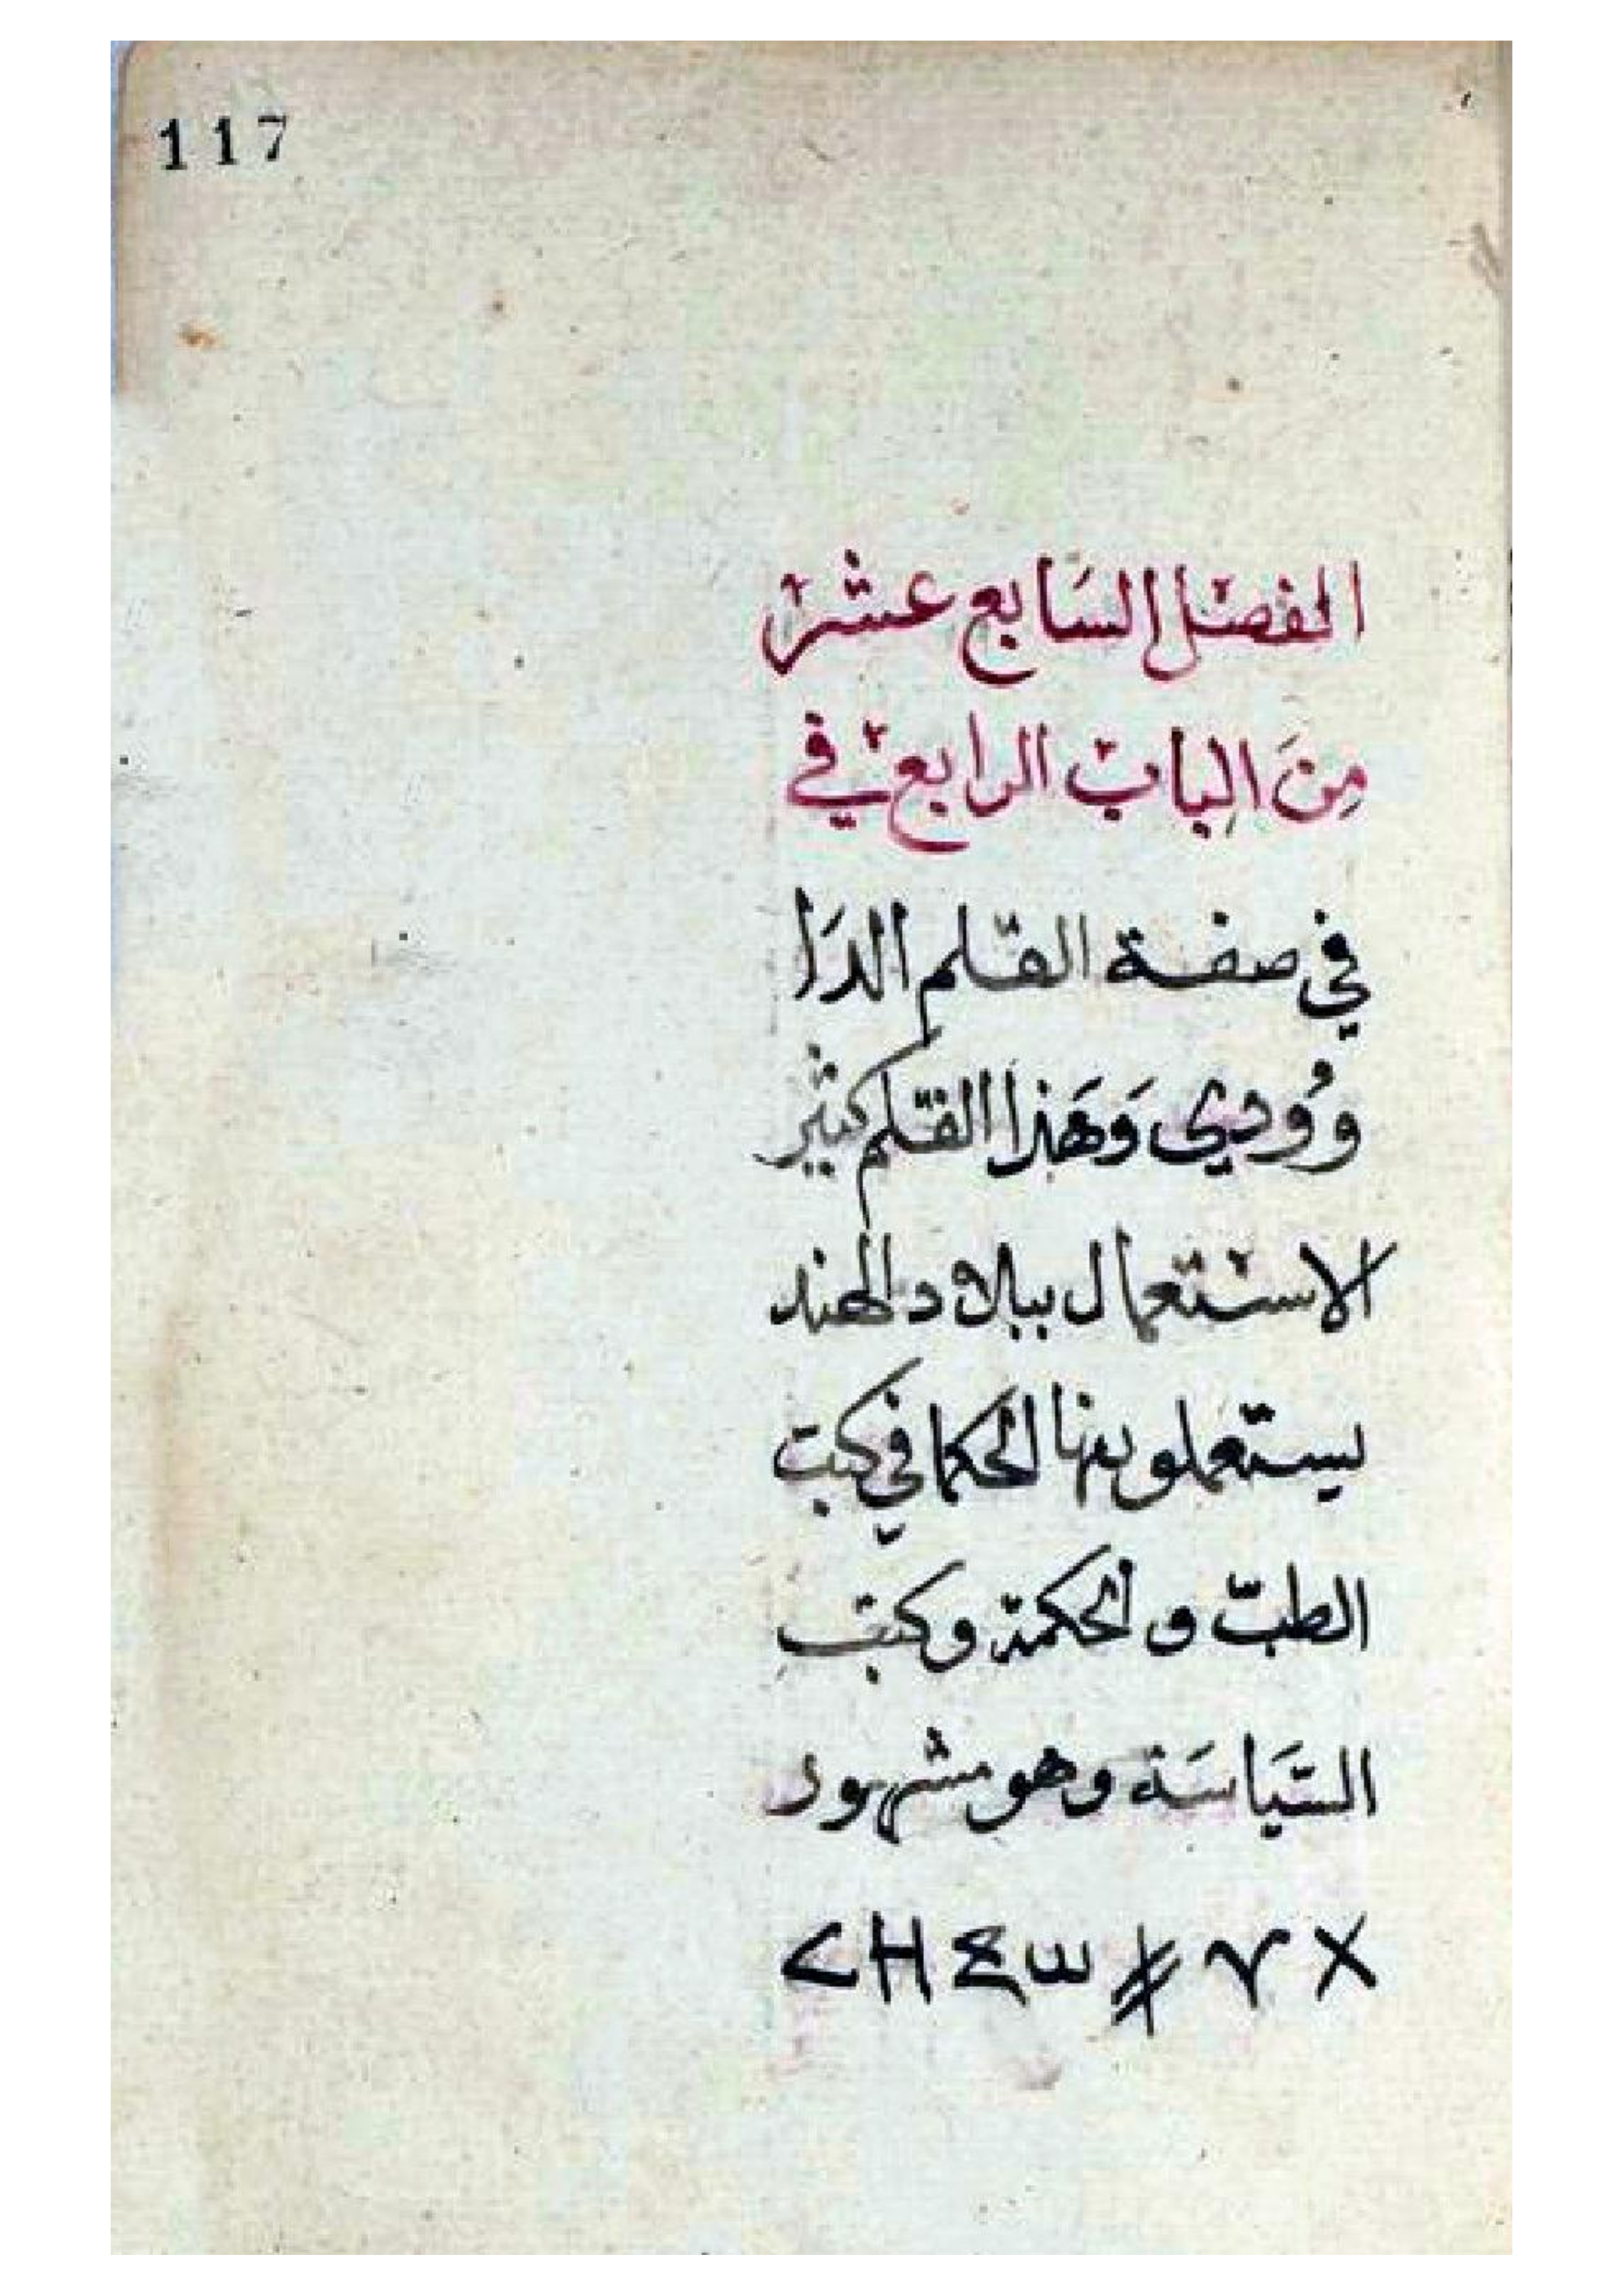 117
الفصل السَابع عشر
مِنَ الباب الرابع في
في صفة القلم الدَا
ووُودي وَهَذا القلم كثير
الاستعمال ببلاد الهند
يستعملونها الحكما في كتب
الطبّ والحكمة وكتبِ
السّيَاسَة وهو مشهور